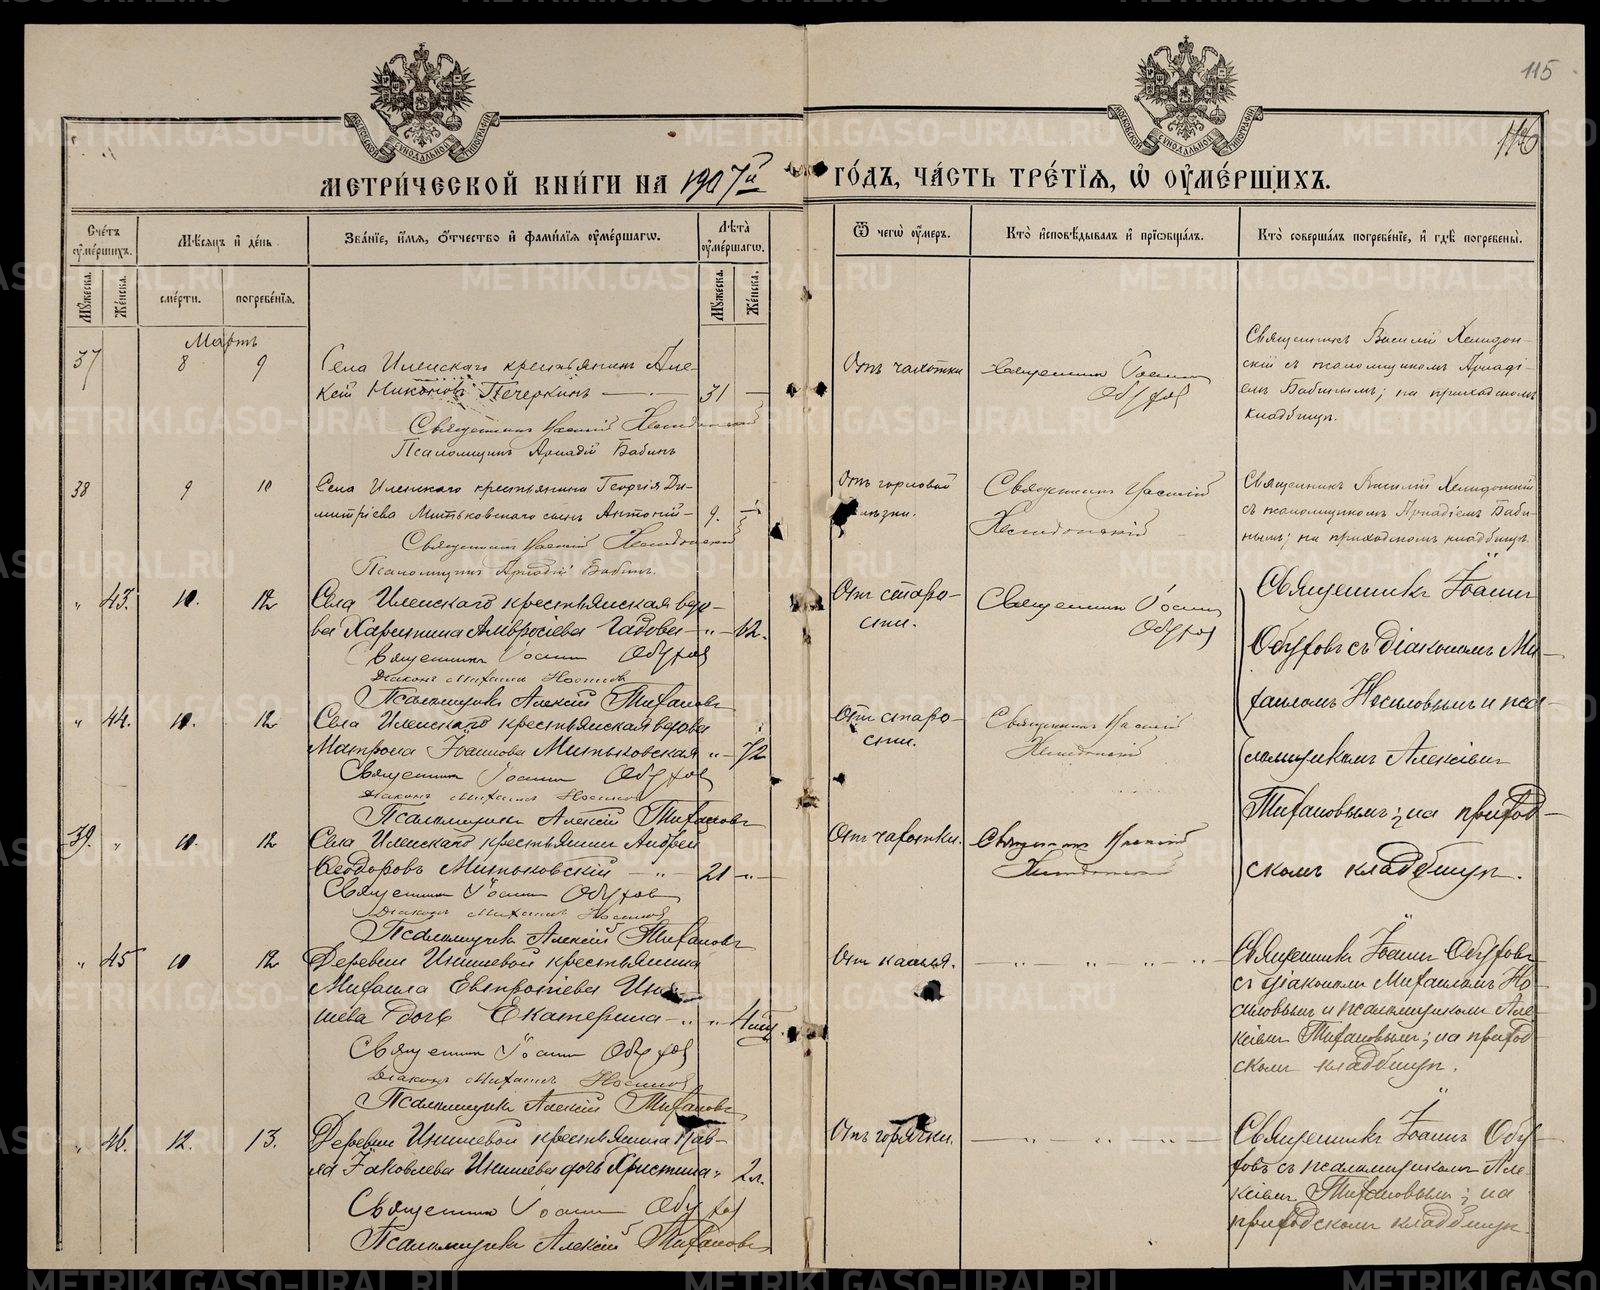 115
116
МЕТРИ́ЧЕСКОЙ КНИ́ГИ НА 1907й ГО́ДЪ, ЧА́СТЬ ТРЕ́ТІѦ, Ѡ҆ ОУ҆МЕ́РШИХЪ.
Сче́тъ оу҆ме́ршихъ.
Мѣ́сѧцъ и҆ де́нь.
Зва́нїе, и҆́мѧ, ѻ҆́тчество и҆ фами́лїѧ оу҆ме́ршагѡ.
Лѣ́та оу҆ме́ршагѡ.
Ѿ чегѡ̀ оу҆́меръ.
Кто̀ и҆сповѣ́дывалъ и҆ прїѡбща́лъ.
Кто̀ соверша́лъ погребе́нїе, и҆ гдѣ̀ погребены̀.
Мꙋ́жеска.
Же́нска.
сме́рти.
погребе́нїѧ.
Мꙋ́жеска.
Же́нска.
Мартъ
37 8 9
Села Иленскаго крестьянинъ Але-
ксѣй Никоновъ Печеркинъ 31
Священникъ Василій Хелидонскій
Псаломщикъ Аркадій Бабинъ
Отъ чахотки
Священникъ Іоаннъ
Обуховъ
Священникъ Василій Хелидон-
скій съ псаломщикомъ Аркаді-
емъ Бабинымъ; на приходскомъ
кладбищѣ.
38 9 10
Села Иленскаго крестьянина Георгія Ди-
митріева Митьковскаго сынъ Антоній 9.
Священникъ Василій Хелидонскій
Псаломщикъ Аркадій Бабинъ.
Отъ горловой
Священникъ Василій
Хелидонскій
Священникъ Василій Хелидонскій
съ псаломщикомъ Аркадіемъ Баби-
нымъ; на приходскомъ кладбищѣ.
" 43. 10. 12
Села Иленскаго крестьянская вдо-
ва Харитина Амвросіева Гадова " 62.
Священникъ Іоаннъ Обуховъ
Діаконъ Михаилъ Носиловъ
Псаломщикъ Алексій Тихановъ
Отъ старо-
сти.
Священникъ Іоаннъ
Обуховъ
Священникъ Іоаннъ
Обуховъ съ діакономъ Ми-
хаиломъ Носиловымъ и пса-
ломщикомъ Алексіемъ
Тихановымъ; на приход-
скомъ кладбищѣ.
" 44. 10. 12
Села Иленскаго крестьянская вдова
Матрона Іоаннова Митьковская " 72
Священникъ Іоаннъ Обуховъ
Діаконъ Михаилъ Носиловъ
Псаломщикъ Алексій Тихановъ
Отъ старо-
сти.
Священникъ Василій
Хелидонскій
39. " 10. 12
Села Иленскаго крестьянинъ Андрей
Ѳеодоровъ Митьковскій 21 "
Священникъ Іоаннъ Обуховъ
Діаконъ Михаилъ Носиловъ
Псаломщикъ Алексій Тихановъ
Отъ чахотки.
Священникъ Василій
Хелидонскій
" 45 10 12
Деревни Инишевой крестьянина
Михаила Евпрокіева Ини-
шева дочь Екатерина " " 4
Священникъ Іоаннъ Обуховъ
Діаконъ Михаилъ Носиловъ
Псаломщикъ Алексій Тихановъ
Отъ кашля.
Священникъ Іоаннъ Обуховъ
съ діакономъ Михаиломъ Но-
силовымъ и псаломщикомъ Але-
ксіемъ Тихановымъ; на приход-
скомъ кладбищѣ.
" 46. 12. 13.
Деревни Инишевой крестьянина Пав-
ла Іаковлева Инишева дочь Христина " 2 л.
Священникъ Іоаннъ Обуховъ
Псаломщикъ Алексій Тихановъ
Отъ горячки.
Священникъ Іоаннъ Обу-
ховъ съ псаломщикомъ Але-
ксіемъ Тихановымъ; на
приходскомъ кладбищѣ.
METRIKI.GASO-URAL.RU